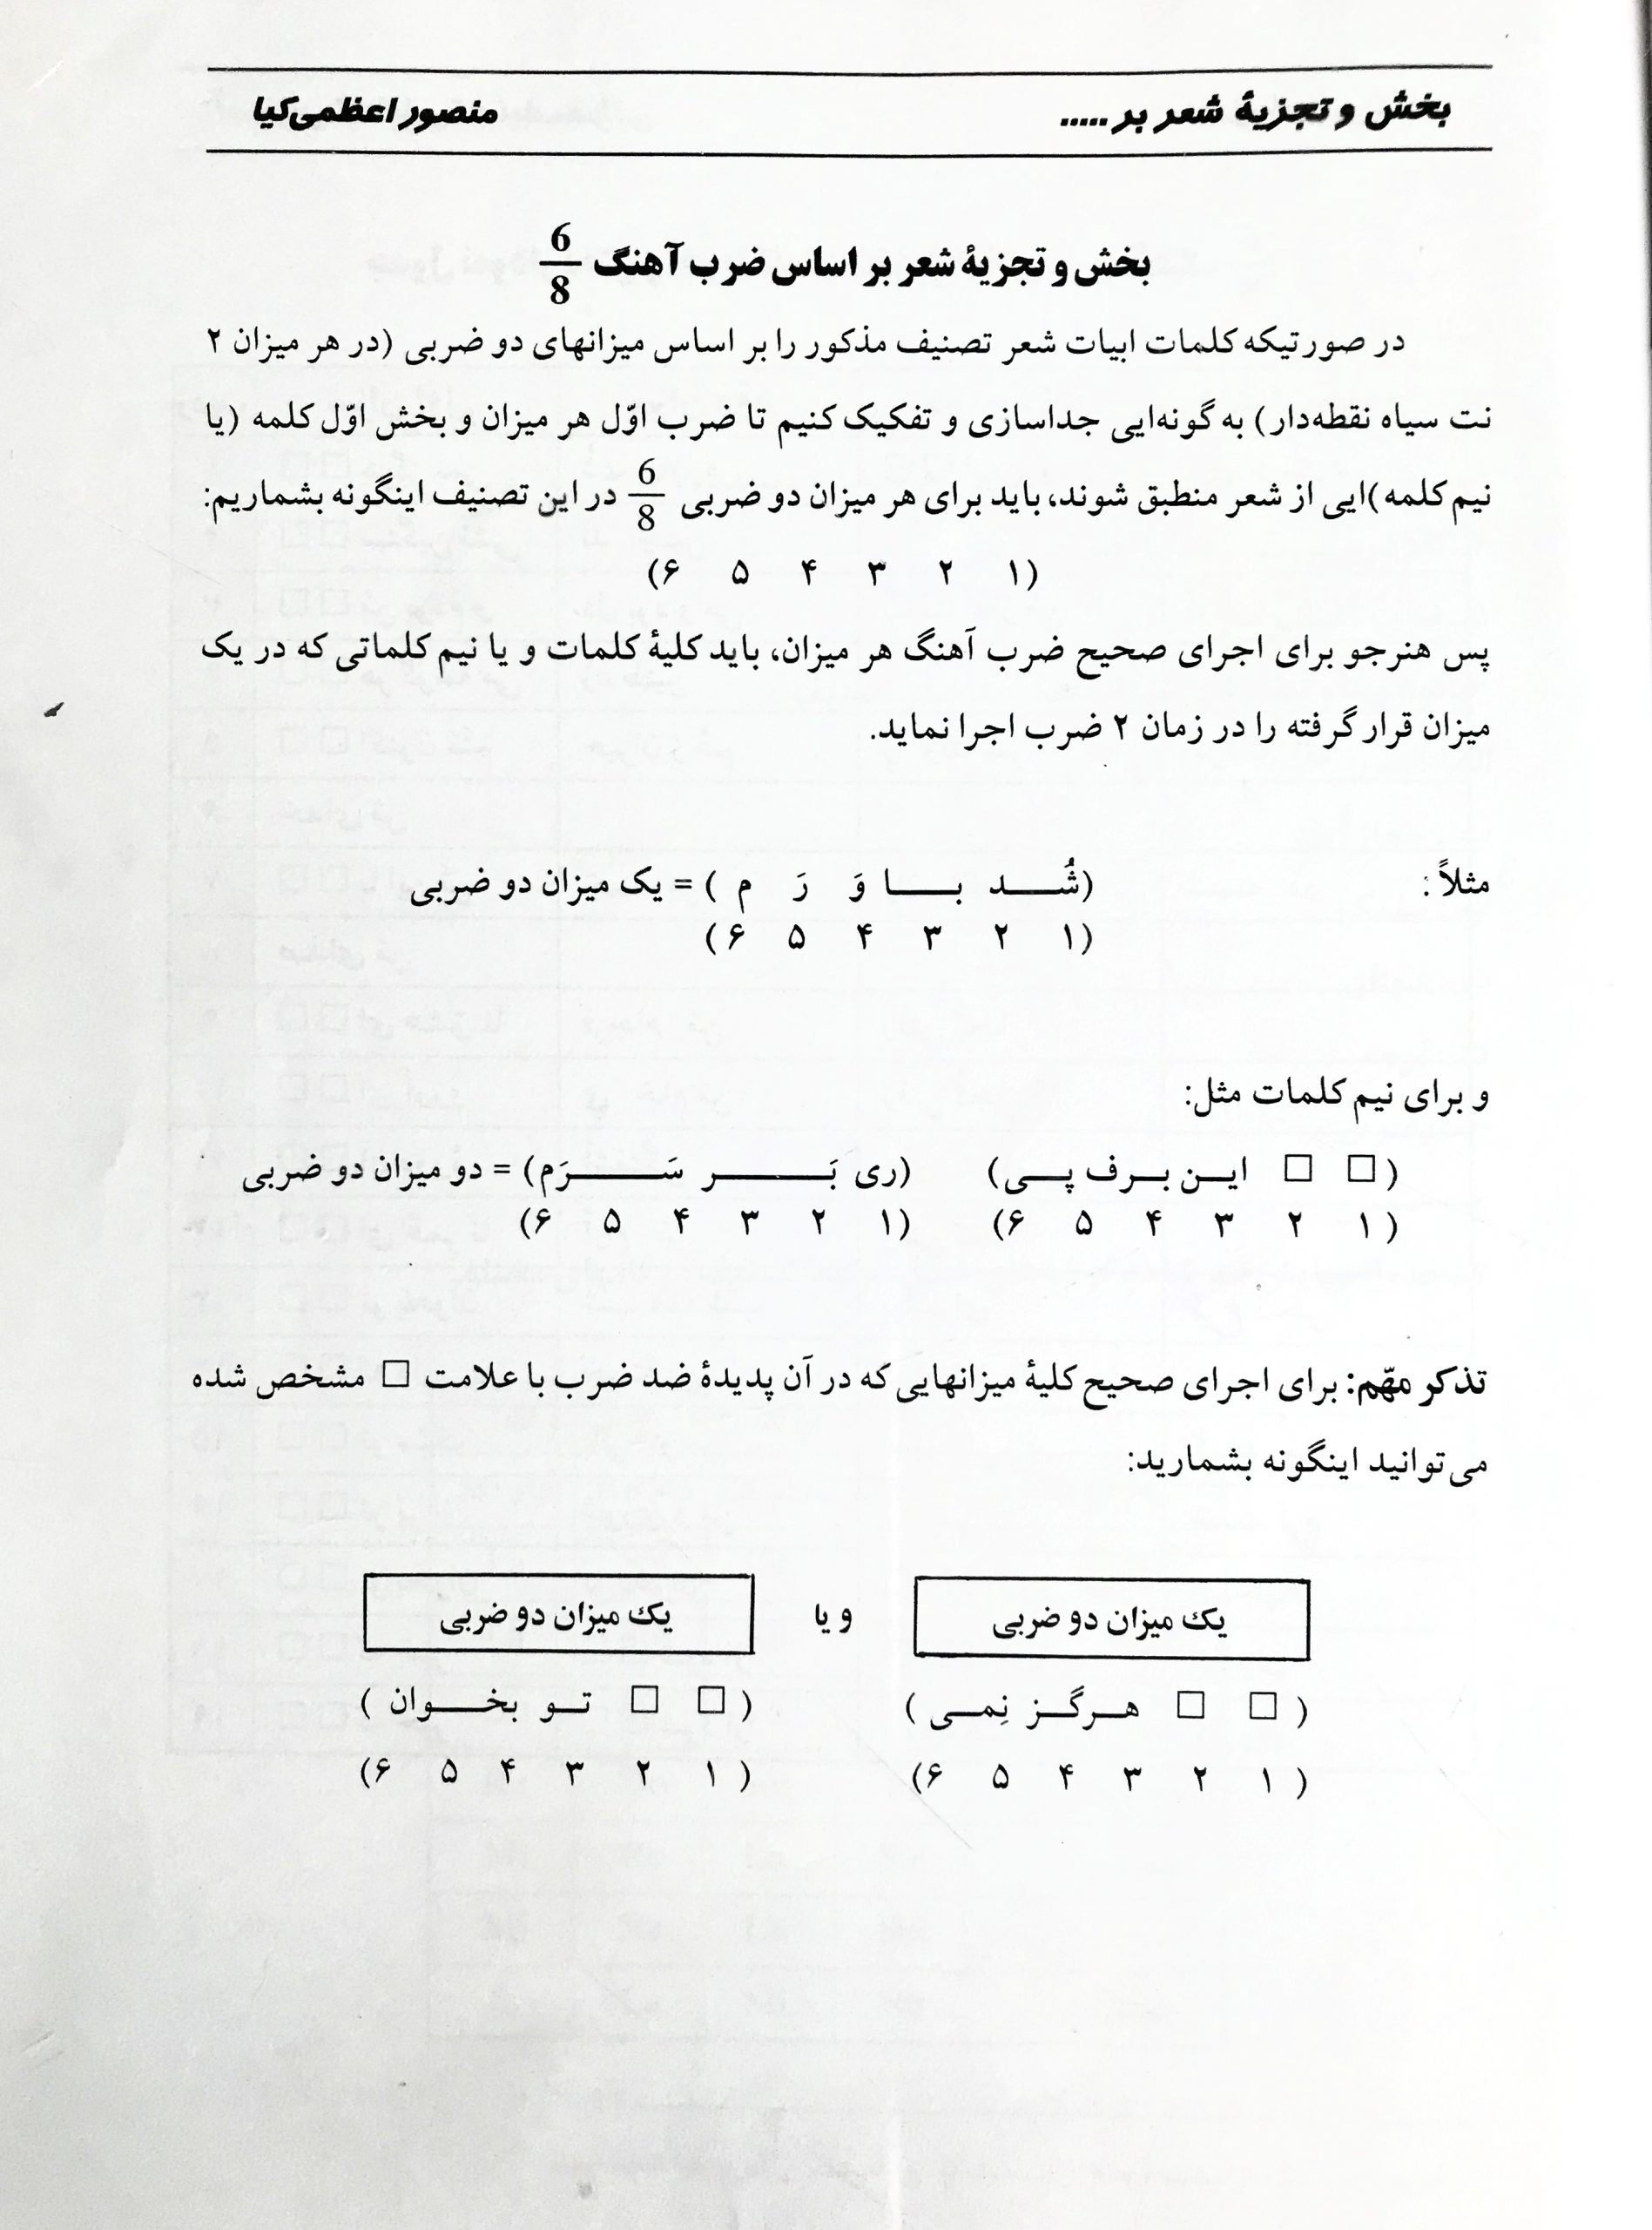 بخش و تجزیهٔ شعر بر ..... منصور اعظمی‌کیا
بخش و تجزیهٔ شعر بر اساس ضرب آهنگ 6/8
در صورتیکه کلمات ابیات شعر تصنیف مذکور را بر اساس میزانهای دو ضربی (در هر میزان ۲
نت سیاه نقطه‌دار) به گونه‌ایی جداسازی و تفکیک کنیم تا ضرب اوّل هر میزان و بخش اوّل کلمه (یا
نیم کلمه)ایی از شعر منطبق شوند، باید برای هر میزان دو ضربی 6/8 در این تصنیف اینگونه بشماریم:
(۱ ۲ ۳ ۴ ۵ ۶)
پس هنرجو برای اجرای صحیح ضرب آهنگ هر میزان، باید کلیهٔ کلمات و یا نیم کلماتی که در یک
میزان قرار گرفته را در زمان ۲ ضرب اجرا نماید.
مثلاً : (شُـــد بـــا وَ رَ م ) = یک میزان دو ضربی
(۱ ۲ ۳ ۴ ۵ ۶)
و برای نیم کلمات مثل:
( □ □ ایـن بـرف پـی) (ری بَـــــر سَـــــرَم) = دو میزان دو ضربی
( ۱ ۲ ۳ ۴ ۵ ۶) (۱ ۲ ۳ ۴ ۵ ۶)
تذکر مهّم: برای اجرای صحیح کلیهٔ میزانهایی که در آن پدیدهٔ ضد ضرب با علامت □ مشخص شده
می‌توانید اینگونه بشمارید:
یک میزان دو ضربی و یا یک میزان دو ضربی
( □ □ هـرگـز نِمـی ) ( □ □ تـو بخـــوان )
( ۱ ۲ ۳ ۴ ۵ ۶) ( ۱ ۲ ۳ ۴ ۵ ۶)